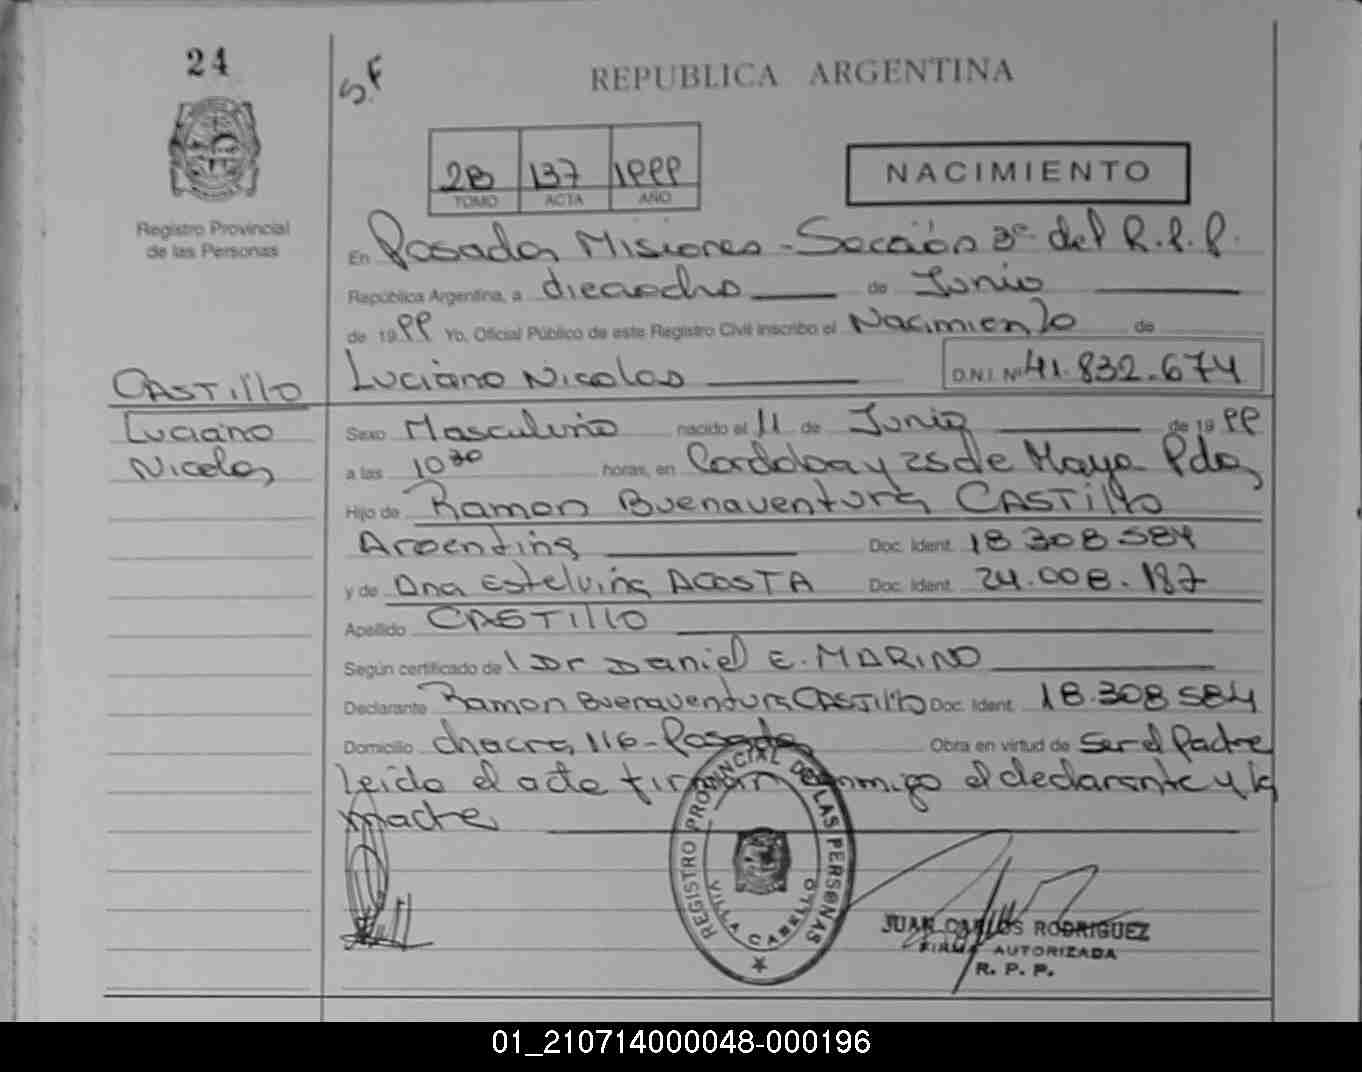 24
S.F
REPUBLICA ARGENTINA
2B 137 1999
TOMO ACTA AÑO
NACIMIENTO
Registro Provincial
de las Personas
En Posadas Misiones - Sección 3ª del R.P.P.
República Argentina, a dieciocho de Junio
de 1999 Yo, Oficial Público de este Registro Civil inscribo el Nacimiento de
Luciano Nicolas D.N.I. Nº 41.832.674
CASTillo
Luciano
Nicolas
Sexo Masculino nacido el 11 de Junio de 1999
a las 10 30 horas, en Cordoba y 25 de Mayo Pdas
Hijo de Ramon Buenaventura CASTillo
Argentina Doc. Ident. 18 308 584
y de Ana Estelvina ACOSTA Doc. Ident. 24.008.187
Apellido CASTillO
Según certificado de Dr Daniel E. MARINO
Declarante Ramon Buenaventura CASTillo Doc. Ident. 18.308 584
Domicilio chacra 116 - Posadas Obra en virtud de ser el Padre
leida el acta firman conmigo el declarante y la
madre
REGISTRO PROVINCIAL DE LAS PERSONAS
VILLA CABELLO
JUAN CARLOS RODRIGUEZ
FIRMA AUTORIZADA
R. P. P.
01_210714000048-000196